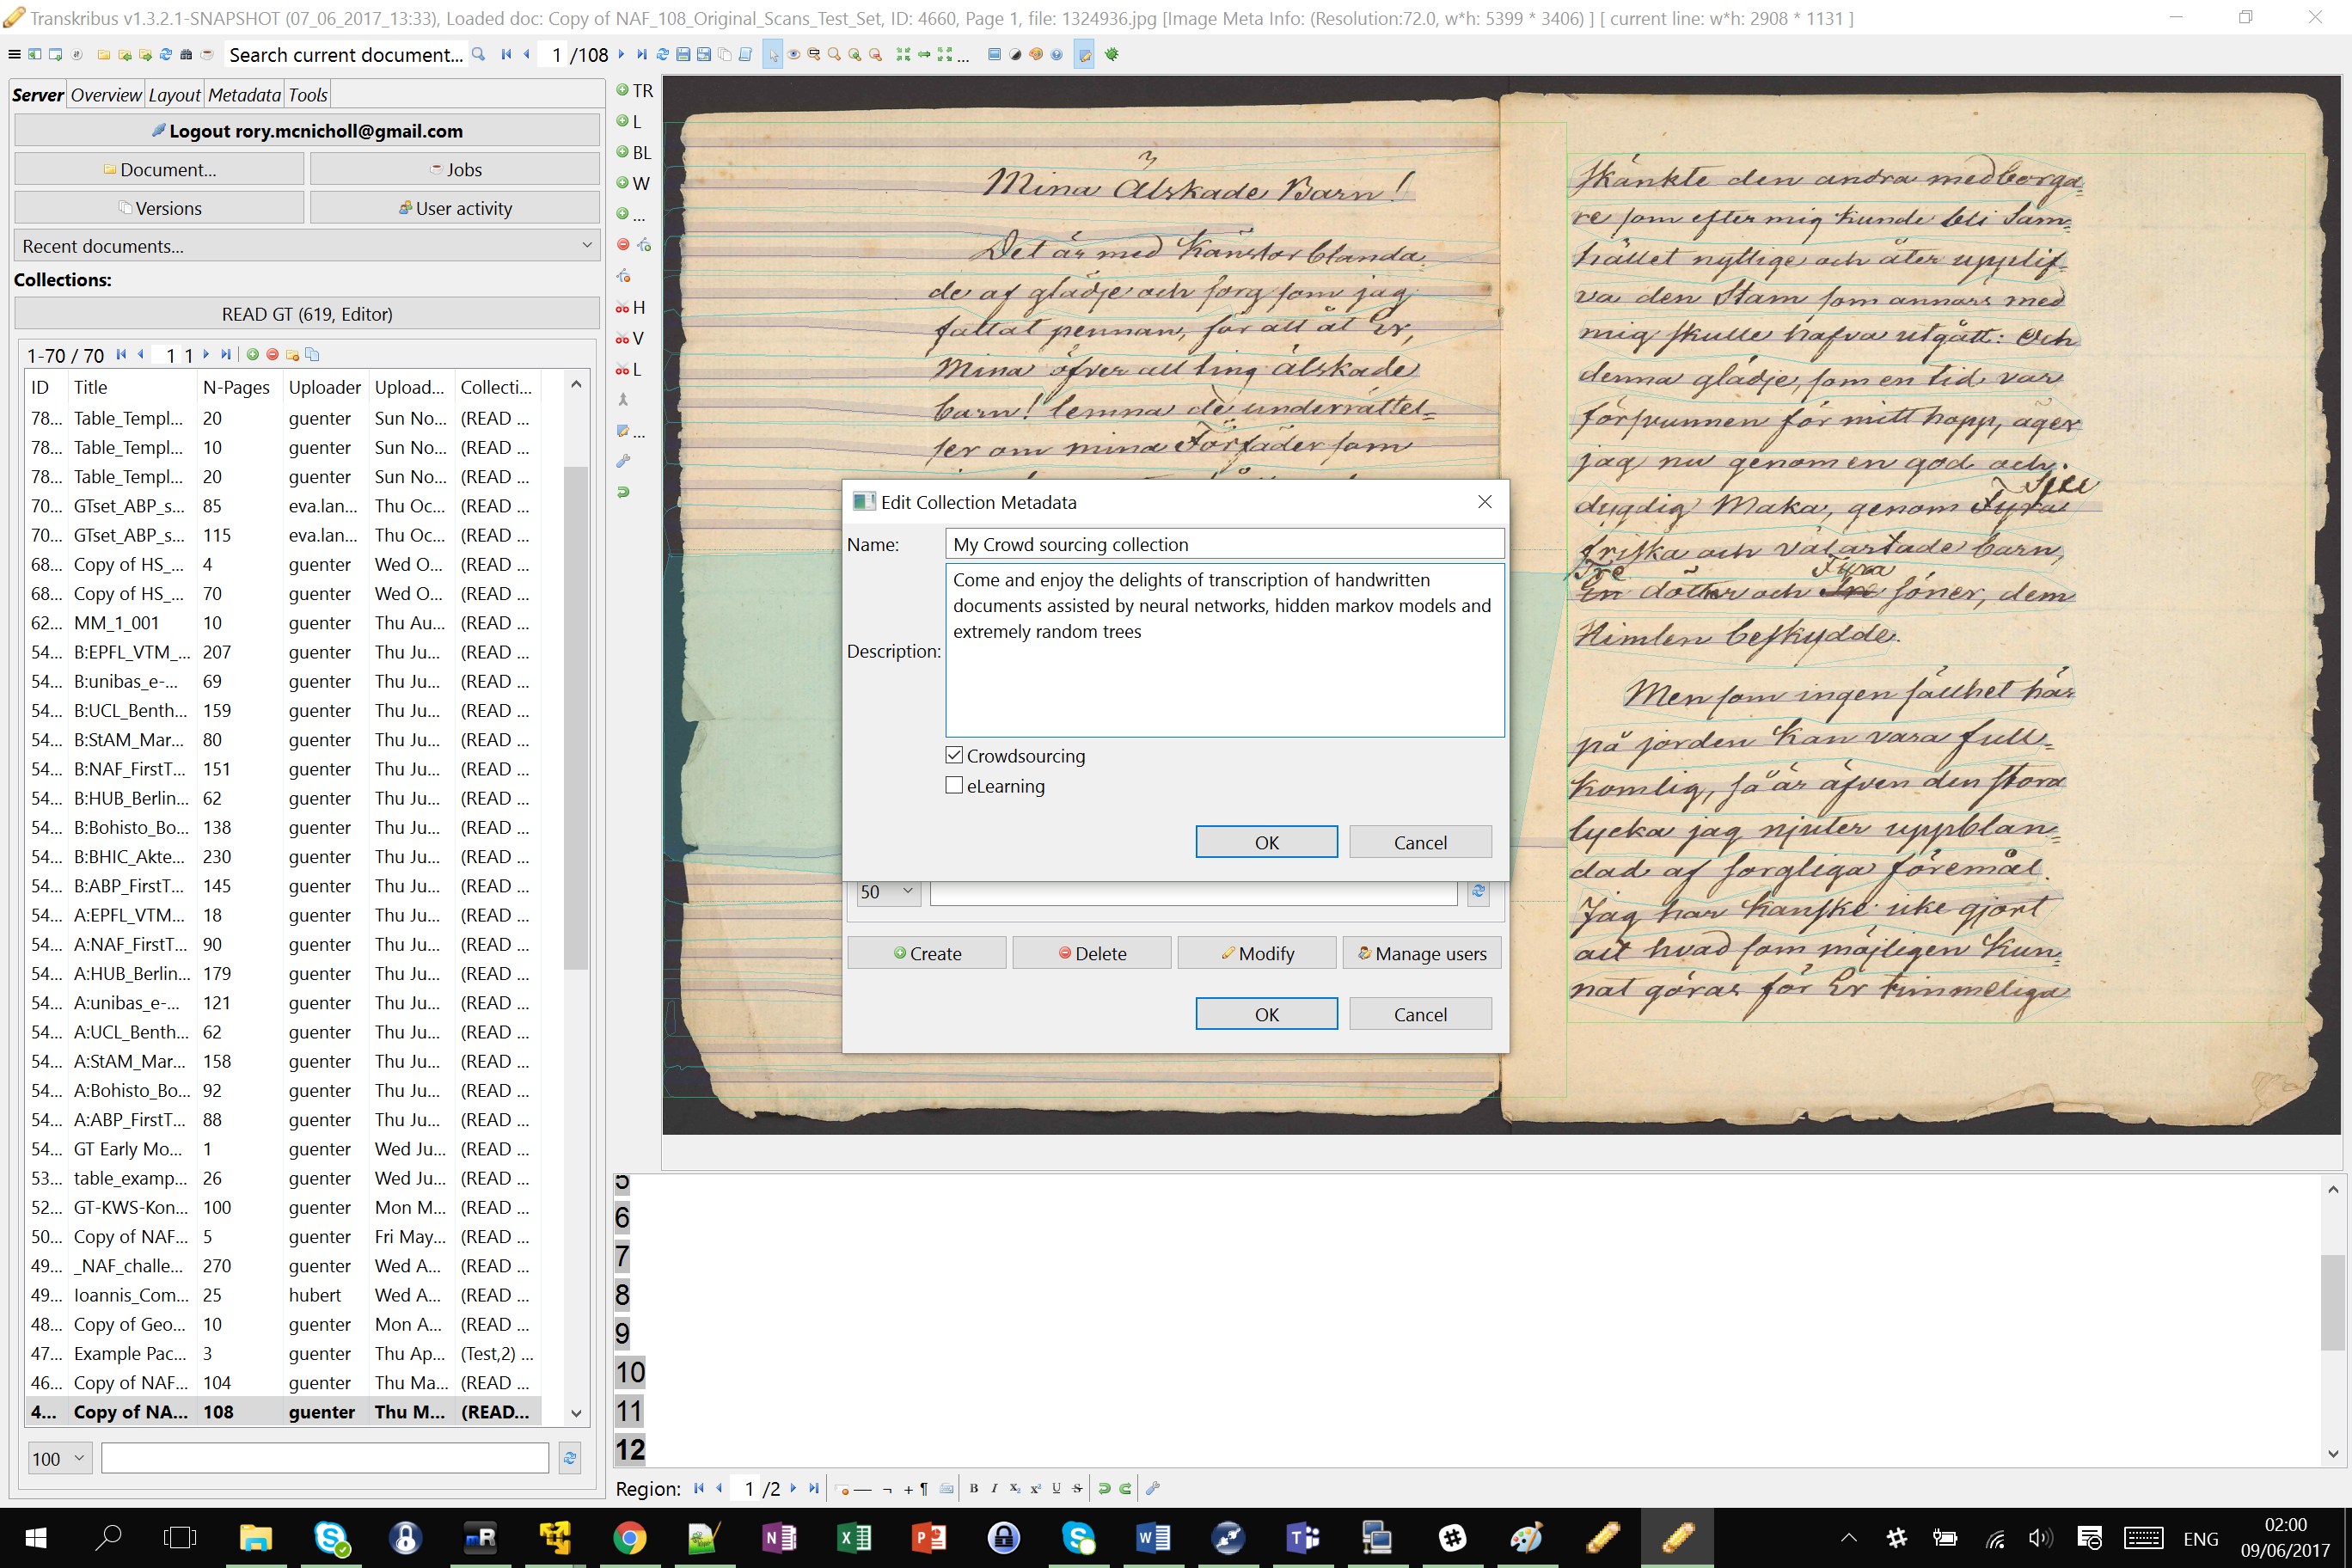 Transkribus v1.3.2.1-SNAPSHOT (07_06_2017_13:33), Loaded doc: Copy of NAF_108_Original_Scans_Test_Set, ID: 4660, Page 1, file: 1324936.jpg [Image Meta Info: (Resolution:72.0, w*h: 5399 * 3406) ] [ current line: w*h: 2908 * 1131 ]
Search current document... 1 /108 ...
Server Overview Layout Metadata Tools
Logout rory.mcnicholl@gmail.com
Document... Jobs
Versions User activity
Recent documents...
Collections:
READ GT (619, Editor)
1-70 / 70 1 1
ID Title N-Pages Uploader Upload... Collecti...
78... Table_Templ... 20 guenter Sun No... (READ ...
78... Table_Templ... 10 guenter Sun No... (READ ...
78... Table_Templ... 20 guenter Sun No... (READ ...
70... GTset_ABP_s... 85 eva.lan... Thu Oc... (READ ...
70... GTset_ABP_s... 115 eva.lan... Thu Oc... (READ ...
68... Copy of HS_... 4 guenter Wed O... (READ ...
68... Copy of HS_... 70 guenter Wed O... (READ ...
62... MM_1_001 10 guenter Thu Au... (READ ...
54... B:EPFL_VTM_... 207 guenter Thu Ju... (READ ...
54... B:unibas_e-... 69 guenter Thu Ju... (READ ...
54... B:UCL_Benth... 159 guenter Thu Ju... (READ ...
54... B:StAM_Mar... 80 guenter Thu Ju... (READ ...
54... B:NAF_FirstT... 151 guenter Thu Ju... (READ ...
54... B:HUB_Berlin... 62 guenter Thu Ju... (READ ...
54... B:Bohisto_Bo... 138 guenter Thu Ju... (READ ...
54... B:BHIC_Akte... 230 guenter Thu Ju... (READ ...
54... B:ABP_FirstT... 145 guenter Thu Ju... (READ ...
54... A:EPFL_VTM... 18 guenter Thu Ju... (READ ...
54... A:NAF_FirstT... 90 guenter Thu Ju... (READ ...
54... A:HUB_Berlin... 179 guenter Thu Ju... (READ ...
54... A:unibas_e-... 121 guenter Thu Ju... (READ ...
54... A:UCL_Benth... 62 guenter Thu Ju... (READ ...
54... A:StAM_Mar... 158 guenter Thu Ju... (READ ...
54... A:Bohisto_Bo... 92 guenter Thu Ju... (READ ...
54... A:ABP_FirstT... 88 guenter Thu Ju... (READ ...
54... GT Early Mo... 1 guenter Wed Ju... (READ ...
53... table_examp... 26 guenter Wed Ju... (READ ...
52... GT-KWS-Kon... 100 guenter Mon M... (READ ...
50... Copy of NAF... 5 guenter Fri May... (READ ...
49... _NAF_challe... 270 guenter Wed A... (READ ...
49... Ioannis_Com... 25 hubert Wed A... (READ ...
48... Copy of Geo... 10 guenter Mon A... (READ ...
47... Example Pac... 3 guenter Thu Ap... (Test,2) ...
46... Copy of NAF... 104 guenter Thu Ma... (READ ...
4... Copy of NA... 108 guenter Thu M... (READ...
100
TR
L
BL
W
...
H
V
L
...
Mina Älskade Barn!
Det är med Känslor blanda
de af glädje och sorg som jag
fattat pennan, för att åt Er,
Mina öfver allting älskade
barn! lemna de underrättel=
ser om mina Förfäder som
skänkte den andra medborga=
re som efter mig kunde bli Sam=
hället nyttige och åter upplif=
va den Stam som annars med
mig skulle hafva utgått: Och
denna glädje, som en tid var
försvunnen för mitt hopp, äger
jag nu genom en god och
dygdig Maka, genom Fyra
friska och välartade barn,
Tre Fyra
En döttrar och Tre söner, dem
Himlen beskydde.
Men som ingen sällhet här
på jorden kan vara full=
komlig, så är äfven den stora
lycka jag njuter uppblan=
dad af sorgliga föremål.
Jag har kanske icke gjort
allt hvad som möjligen kun=
nat göras för Er timmeliga
Edit Collection Metadata
Name: My Crowd sourcing collection
Description:
Come and enjoy the delights of transcription of handwritten
documents assisted by neural networks, hidden markov models and
extremely random trees
Crowdsourcing
eLearning
OK Cancel
50
Create Delete Modify Manage users
OK Cancel
5
6
7
8
9
10
11
12
Region: 1 /2 B I X₂ X² U S
ENG
02:00
09/06/2017